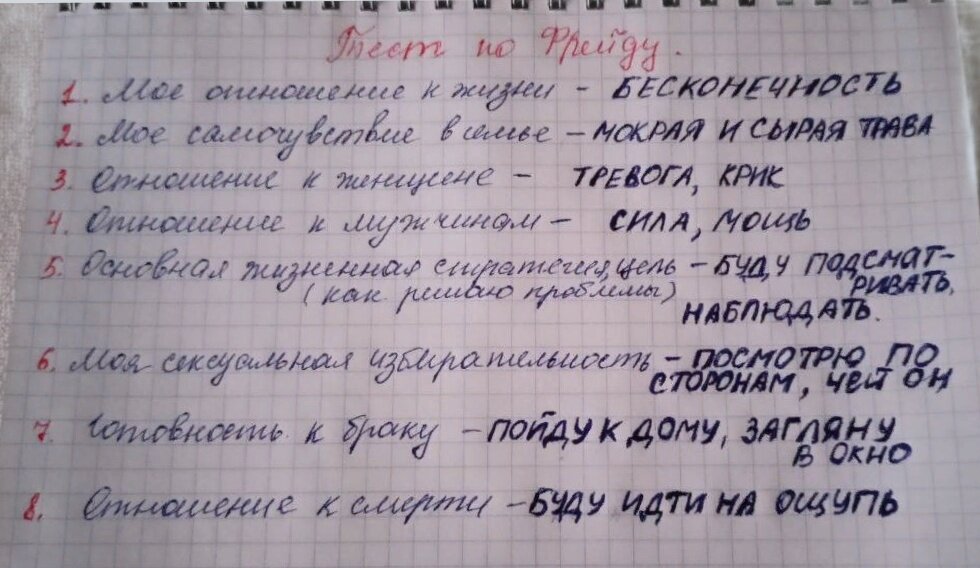 Тест по Фрейду.
1. Мое отношение к жизни - БЕСКОНЕЧНОСТЬ
2. Мое самочувствие в семье - МОКРАЯ И СЫРАЯ ТРАВА
3. Отношение к женщине - ТРЕВОГА, КРИК
4. Отношение к мужчинам - СИЛА, МОЩЬ
5. Основная жизненная стратегия, цель - БУДУ ПОДСМАТ-
(как решаю проблемы) РИВАТЬ,
НАБЛЮДАТЬ.
6. Моя сексуальная избирательность - ПОСМОТРЮ ПО
СТОРОНАМ, ЧЕЙ ОН
7. Готовность к браку - ПОЙДУ К ДОМУ, ЗАГЛЯНУ
В ОКНО
8. Отношение к смерти - БУДУ ИДТИ НА ОЩУПЬ